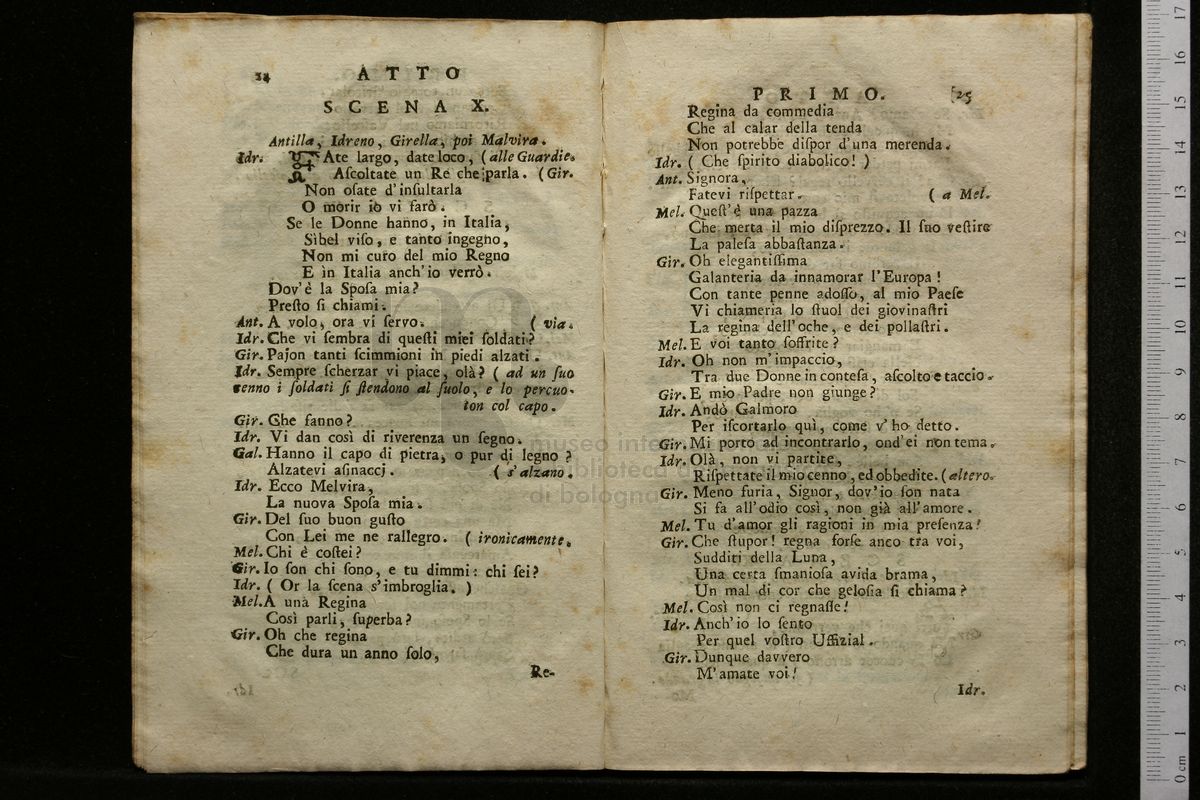 24 ATTO
SCENA X.
Antilla, Idreno, Girella, poi Malvira.
Idr. DAte largo, date loco, (alle Guardie.
Aſcoltate un Re che parla. (Gir.
Non oſate d'inſultarla
O morir io vi farò.
Se le Donne hanno, in Italia,
Sìbel viſo, e tanto ingegno,
Non mi curo del mio Regno
E in Italia anch'io verrò.
Dov'è la Spoſa mia?
Preſto ſi chiami.
Ant. A volo, ora vi ſervo. (via.
Idr. Che vi ſembra di queſti miei ſoldati?
Gir. Pajon tanti ſcimmioni in piedi alzati.
Idr. Sempre ſcherzar vi piace, olà? (ad un ſuo
cenno i ſoldati ſi ſtendono al ſuolo, e lo percuo-
ton col capo.
Gir. Che fanno?
Idr. Vi dan così di riverenza un ſegno.
Gal. Hanno il capo di pietra, o pur di legno?
Alzatevi aſinacci. (s'alzano.
Idr. Ecco Melvira,
La nuova Spoſa mia.
Gir. Del ſuo buon guſto
Con Lei me ne rallegro. (ironicamente.
Mel. Chi è coſtei?
Gir. Io ſon chi ſono, e tu dimmi: chi ſei?
Idr. (Or la ſcena s'imbroglia.)
Mel. A una Regina
Così parli, ſuperba?
Gir. Oh che regina
Che dura un anno ſolo,
Re-
PRIMO. 25
Regina da commedia
Che al calar della tenda
Non potrebbe diſpor d'una merenda.
Idr. (Che ſpirito diabolico!)
Ant. Signora,
Fatevi riſpettar. (a Mel.
Mel. Queſt'è una pazza
Che merta il mio diſprezzo. Il ſuo veſtire
La paleſa abbaſtanza.
Gir. Oh elegantiſſima
Galanteria da innamorar l'Europa!
Con tante penne adoſſo, al mio Paeſe
Vi chiameria lo ſtuol dei giovinaſtri
La regina dell'oche, e dei pollaſtri.
Mel. E voi tanto ſoffrite?
Idr. Oh non m'impaccio,
Tra due Donne in conteſa, aſcolto e taccio.
Gir. E mio Padre non giunge?
Idr. Andò Galmoro
Per iſcortarlo quì, come v'ho detto.
Gir. Mi porto ad incontrarlo, ond'ei non tema.
Idr. Olà, non vi partite,
Riſpettate il mio cenno, ed obbedite. (altero.
Gir. Meno furia, Signor, dov'io ſon nata
Si fa all'odio così, non già all'amore.
Mel. Tu d'amor gli ragioni in mia preſenza!
Gir. Che ſtupor! regna forſe anco tra voi,
Sudditi della Luna,
Una certa ſmanioſa avida brama,
Un mal di cor che geloſia ſi chiama?
Mel. Così non ci regnaſſe!
Idr. Anch'io lo ſento
Per quel voſtro Uffizial.
Gir. Dunque davvero
M'amate voi!
Idr.